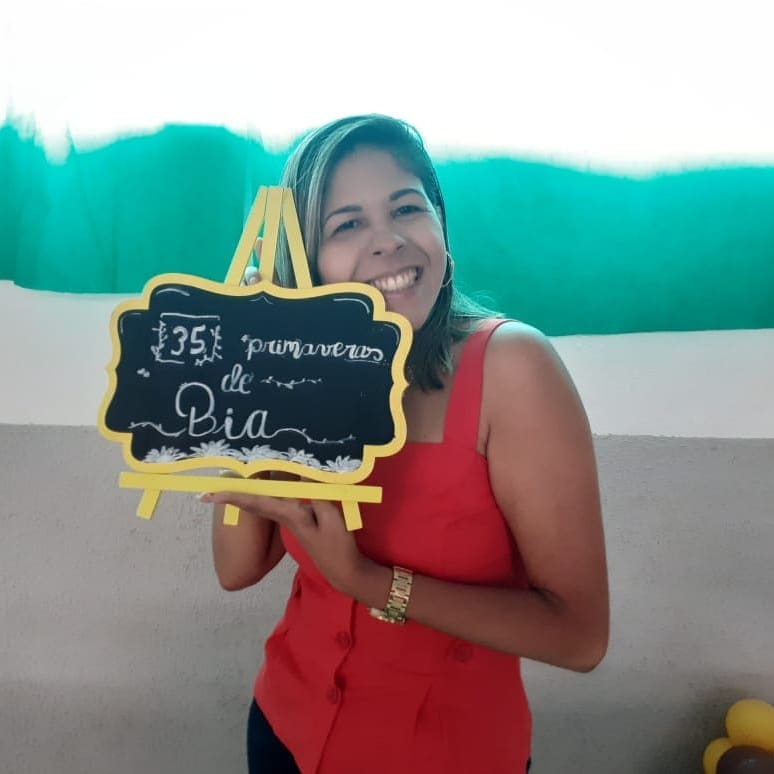 35 primaveras
de
Bia